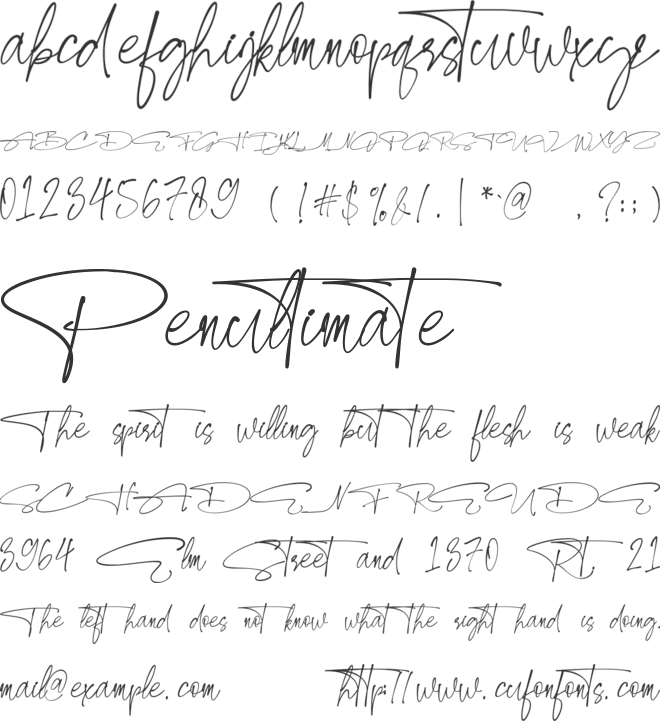 abcdefghijklmnopqrstuvwxyz
ABCDEFGHIJKLMNOPQRSTUVWXYZ
0123456789 ( ! # $ % & / . | * ` @ , ? : ; )
Pencultimate
The spirit is willing but the flesh is weak
SCHADENFREUDE
3964 Elm Street and 1370 Rt. 21
The left hand does not know what the right hand is doing.
mail@example.com http://www.cufonfonts.com